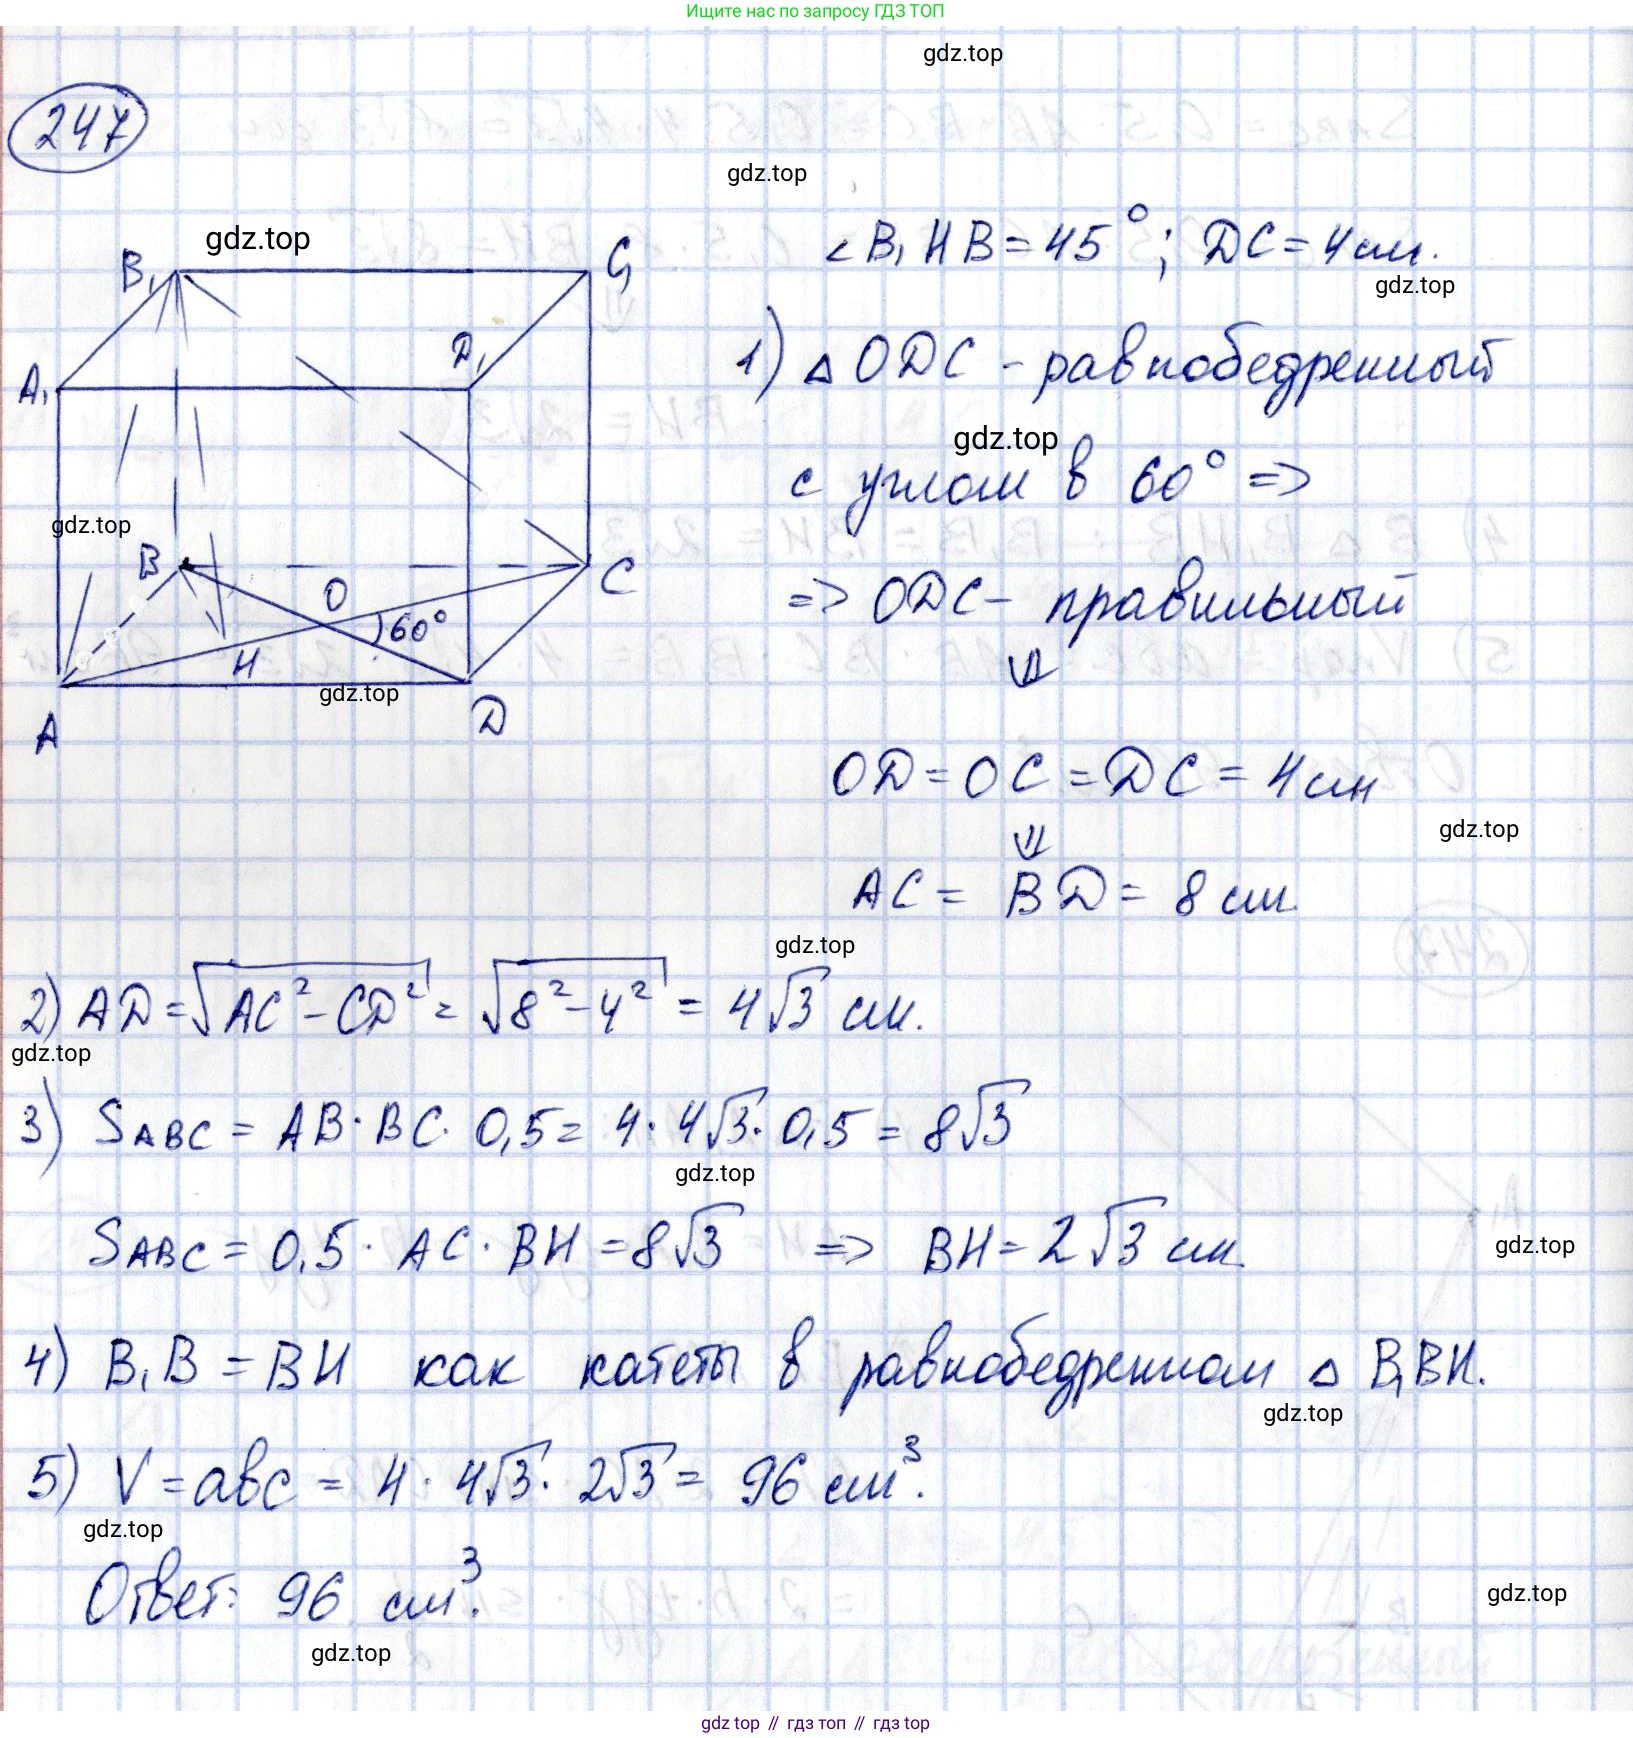 Ищите нас по запросу ГДЗ ТОП
gdz.top
247
gdz.top
gdz.top
∠B₁HB = 45°; DC = 4 см.
gdz.top
B₁
C₁
A₁
D₁
1) △ ODC - равнобедренный
gdz.top
с углом в 60° =>
gdz.top
B
O
60°
C
H
=> ODC - правильный
⇓
gdz.top
A
D
OD = OC = DC = 4 см
gdz.top
⇓
AC = BD = 8 см
gdz.top
2) AD = √(AC² - CD²) = √(8² - 4²) = 4√3 см.
gdz.top
3) SABC = AB · BC · 0,5 = 4 · 4√3 · 0,5 = 8√3
gdz.top
SABC = 0,5 · AC · BH = 8√3 => BH = 2√3 см.
gdz.top
4) B₁B = BH как катеты в равнобедренном △ B₁BH.
gdz.top
5) V = abc = 4 · 4√3 · 2√3 = 96 см³.
gdz.top
Ответ: 96 см³.
gdz.top
gdz.top
gdz top // гдз топ // гдз top